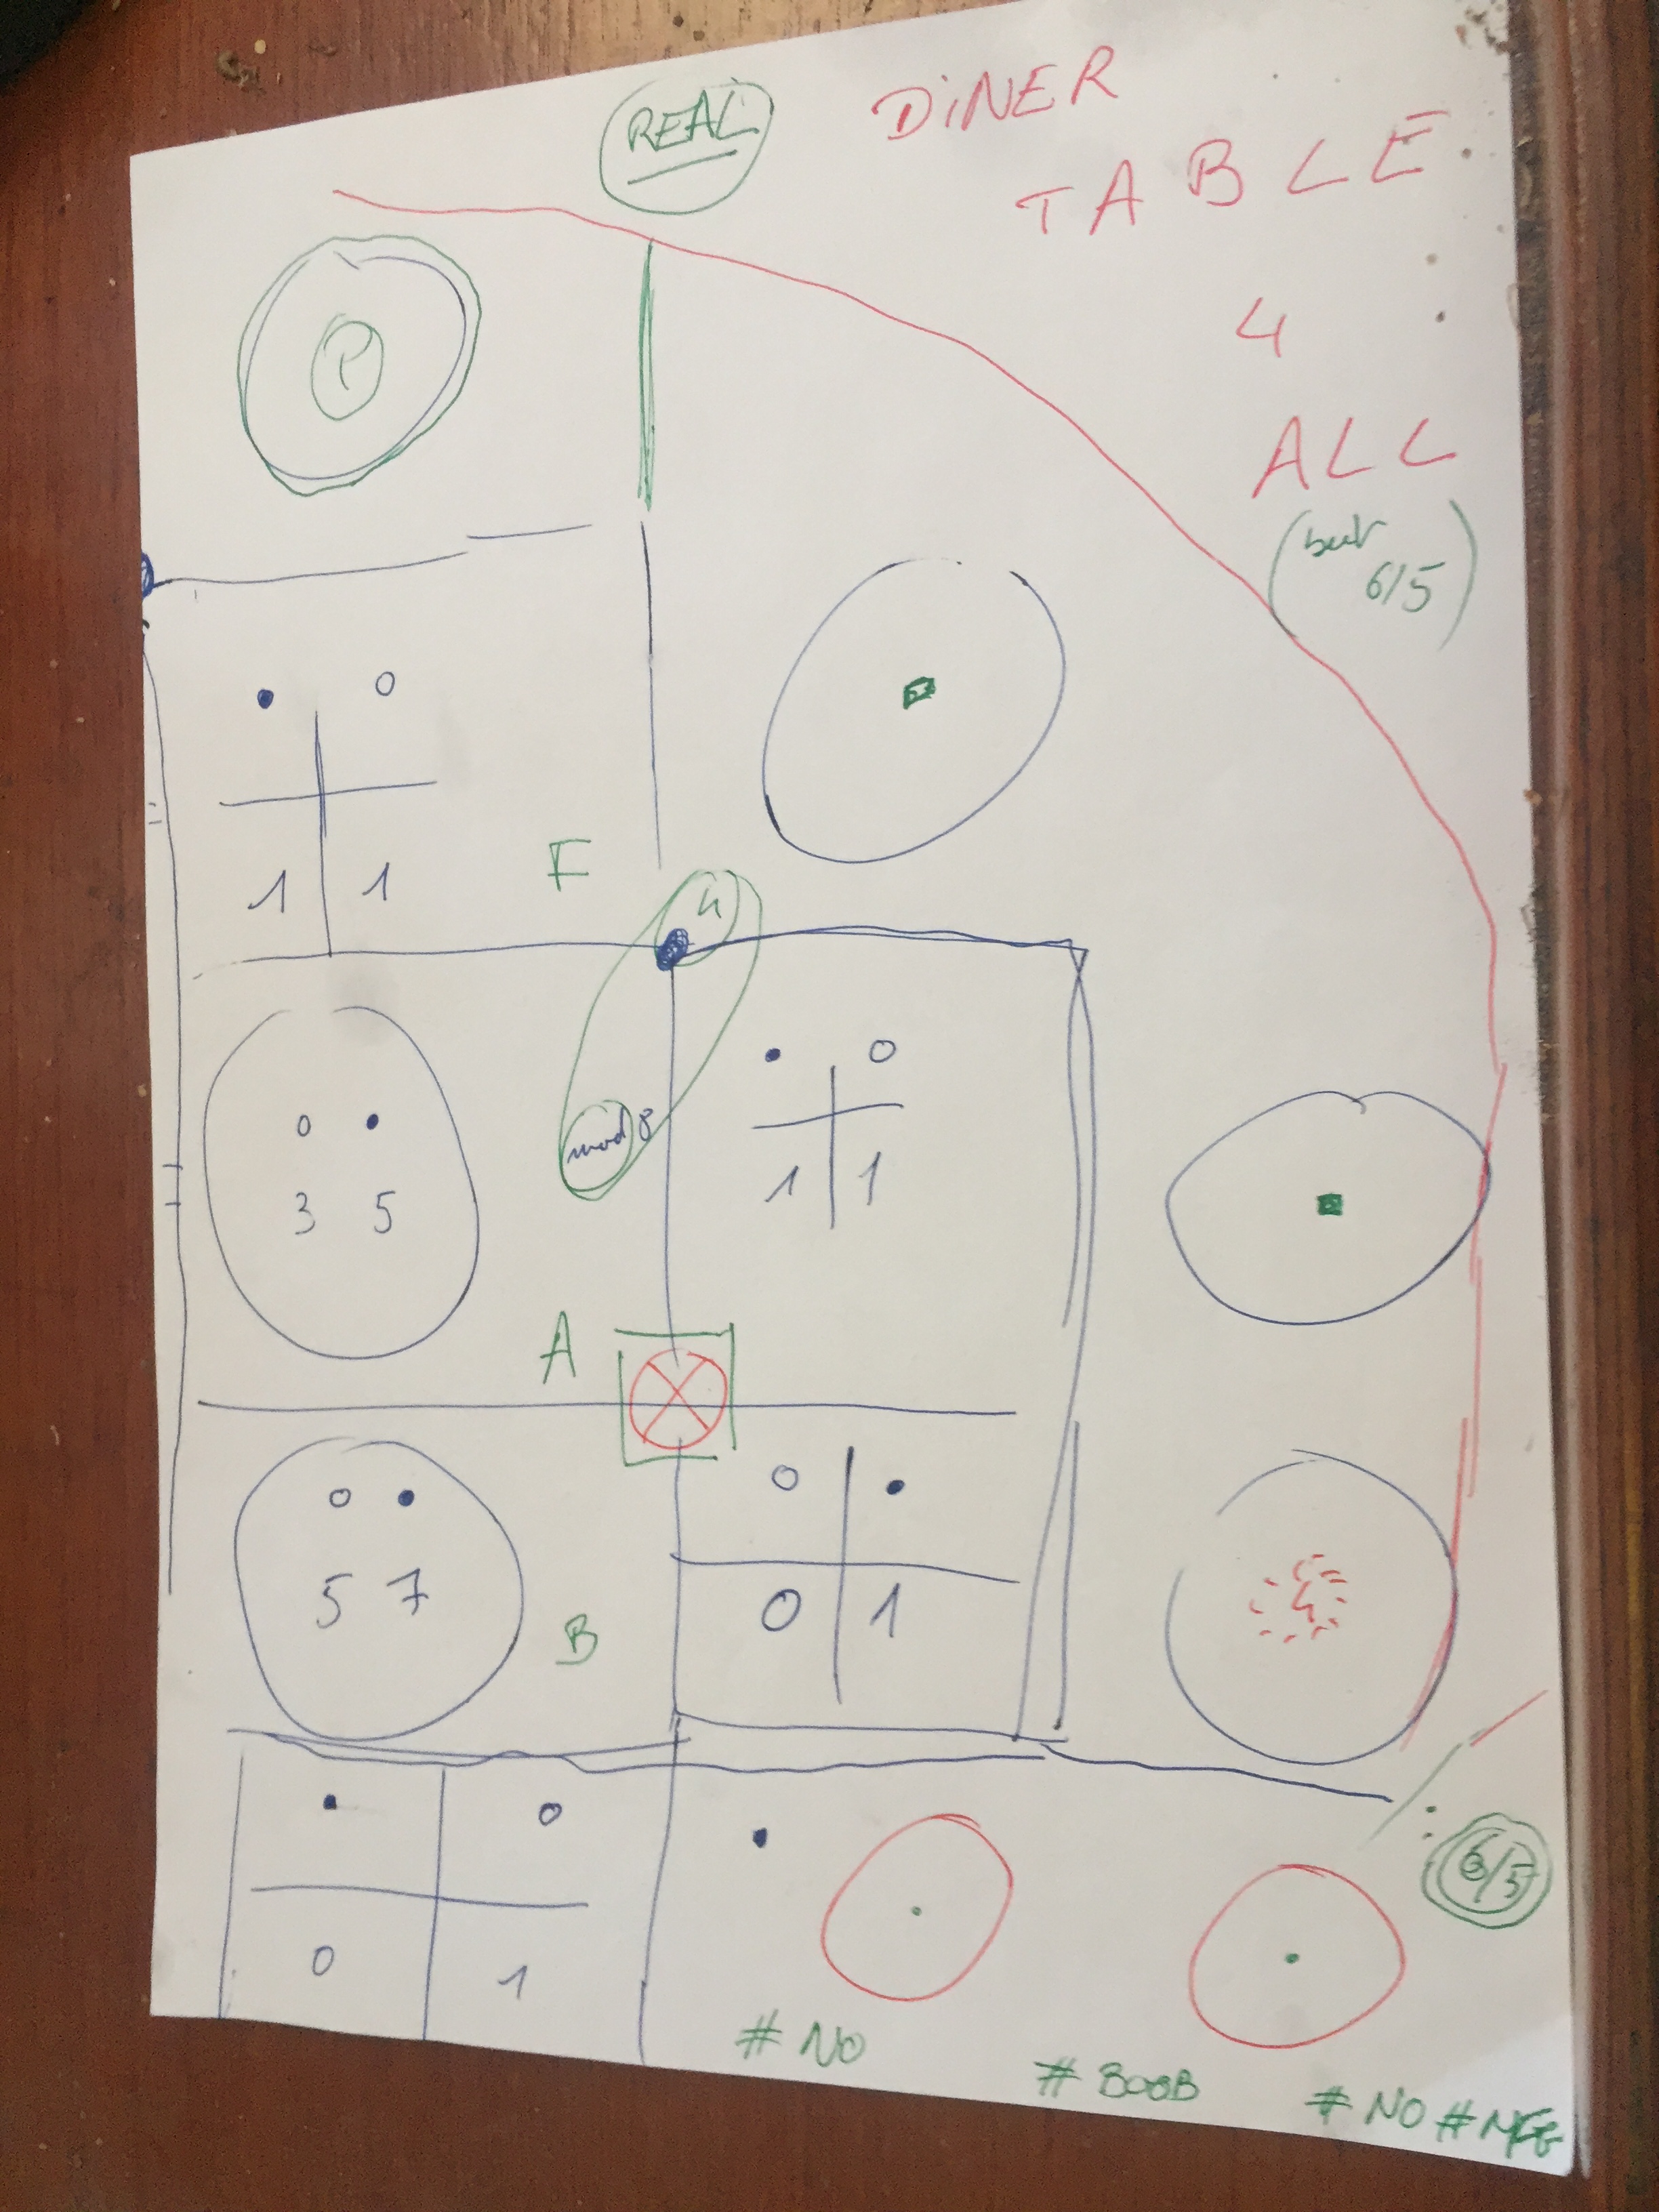 REAL
DiNER
TABLE
4
ALL
(but
6/5)
P
1 1
F
4
mod 8
3 5
1 1
A
5 7
0 1
B
4
0 1
6/5
# NO
# BOOB
# NO #